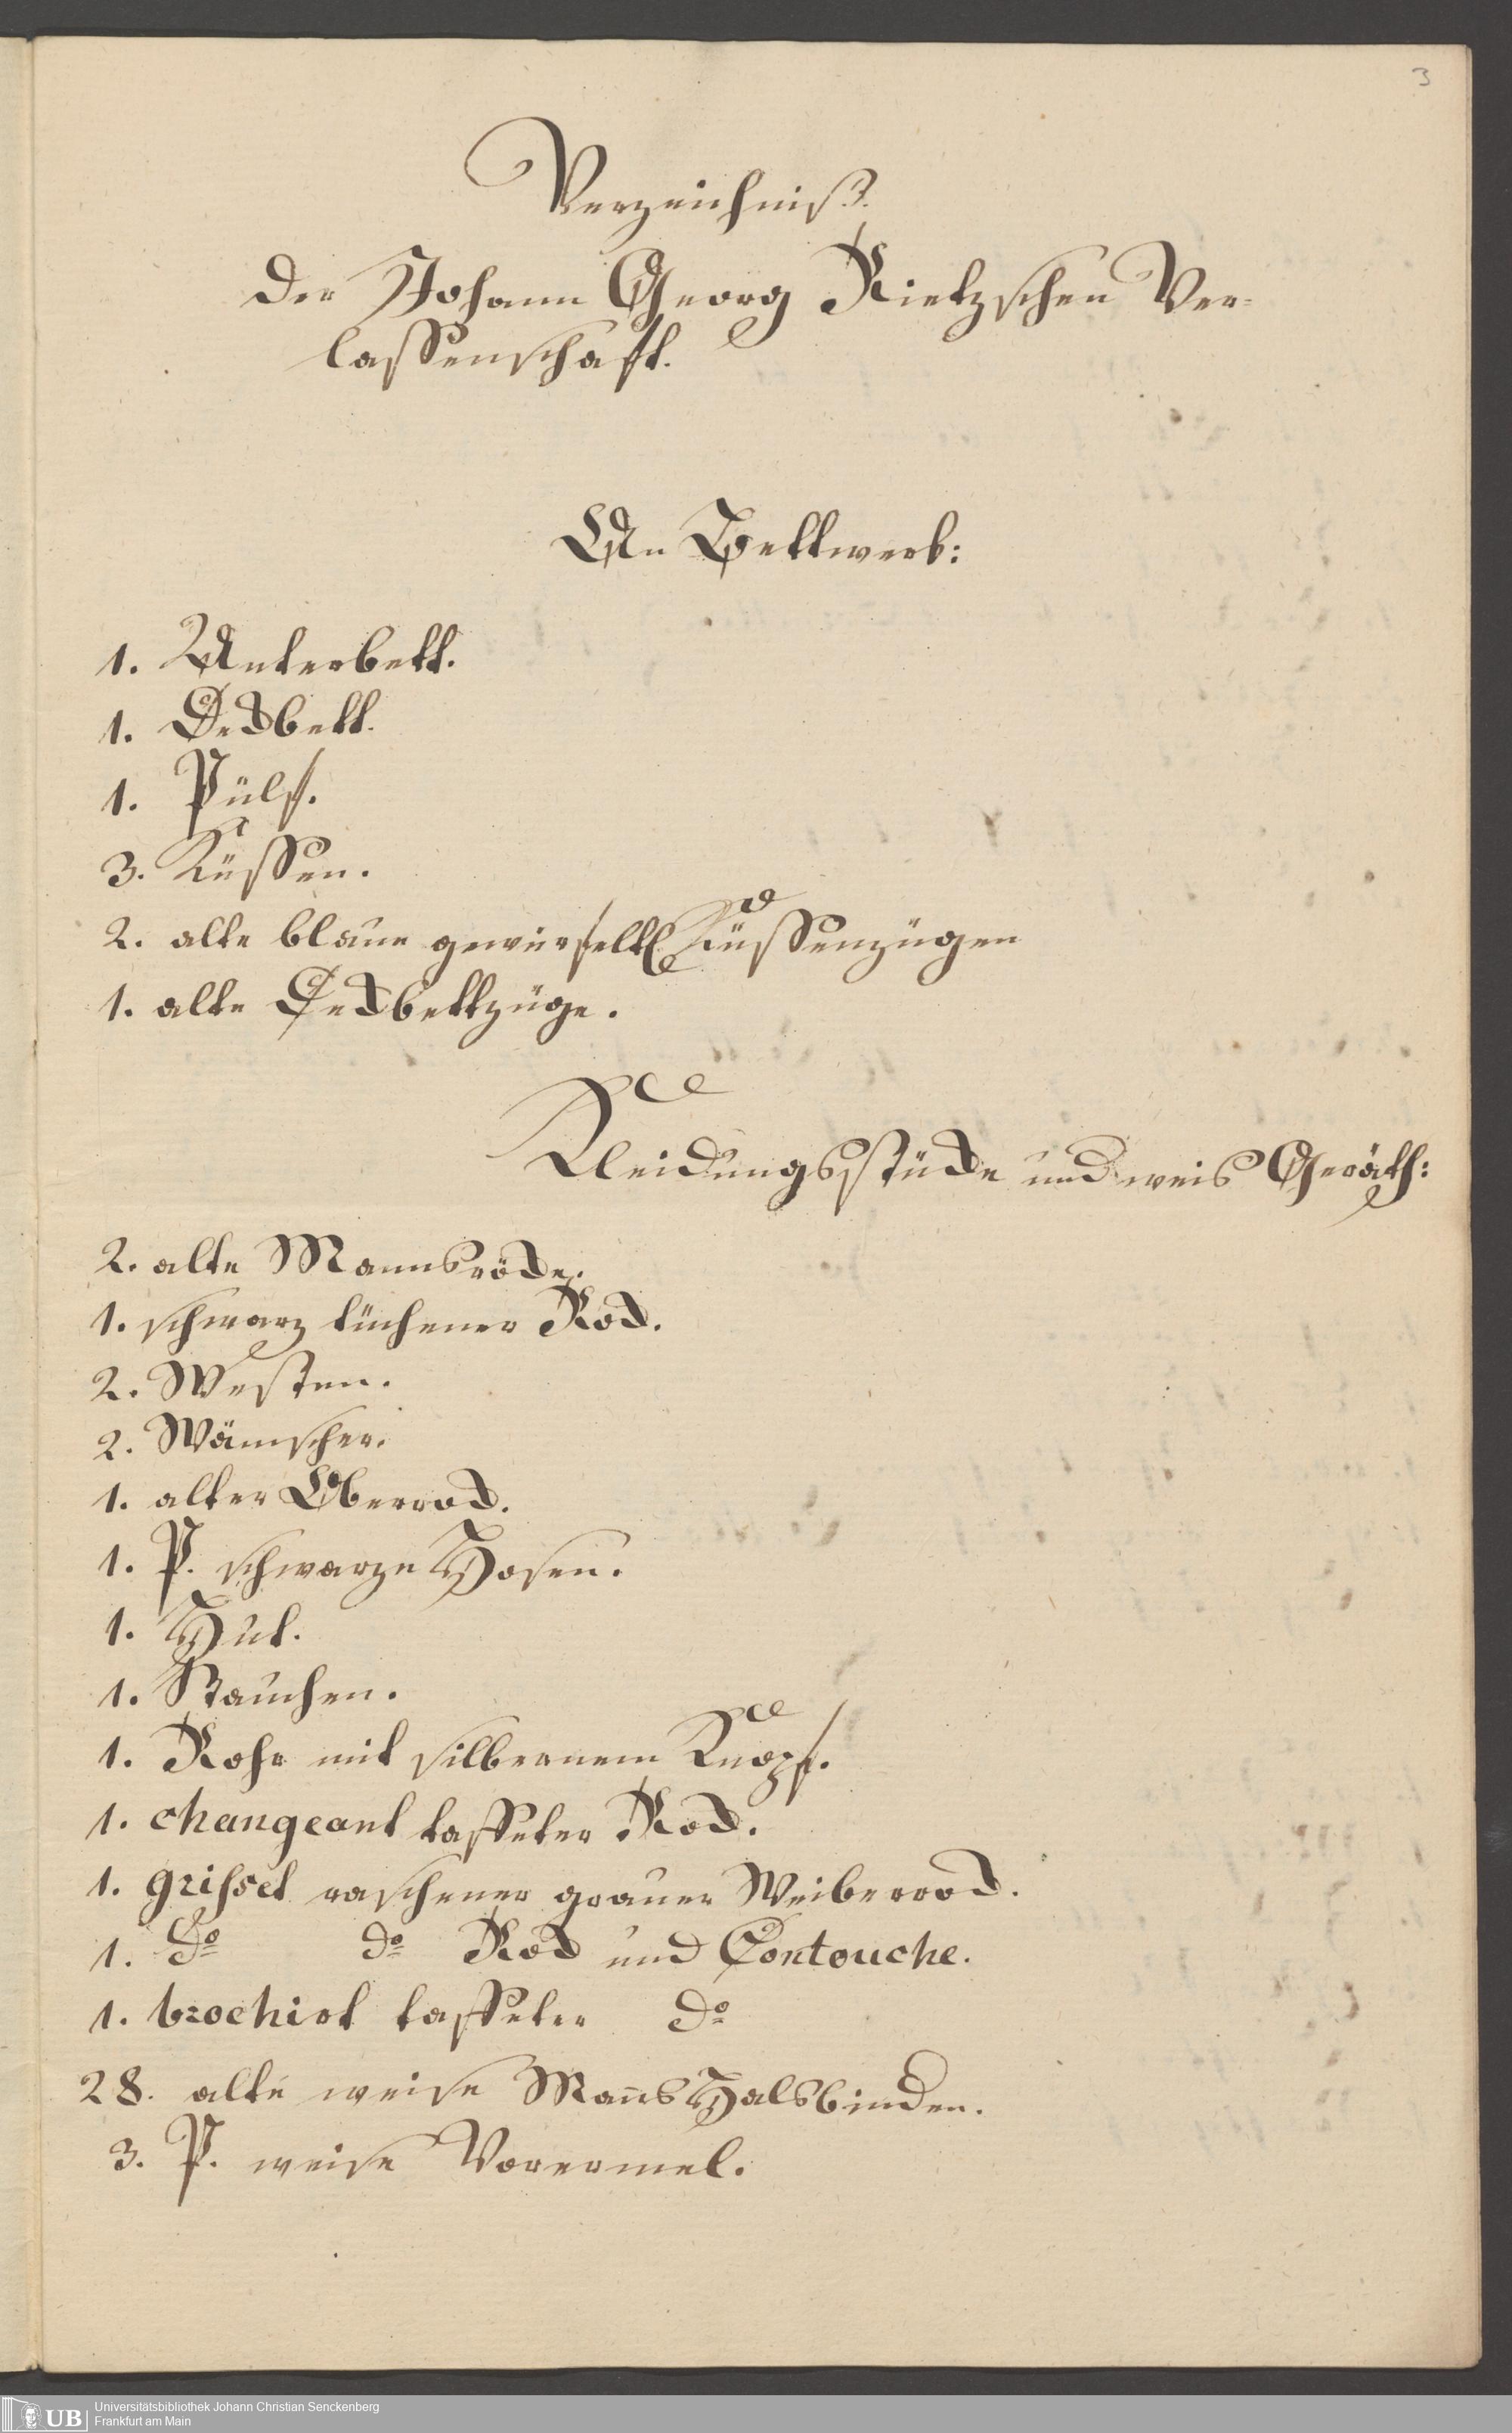 3
Verzeichniß.
der Johann Georg Rietzschen Ver-
lassenschaft.
An Bettwerk:
1. Unterbett.
1. Deckbett.
1. Pülf.
3. Küssen.
2. alte blaue gewürfelte Küssenzügen
1. alte Deckbettzüge.
Kleidungsstücke und weis Geräth:
2. alte Mannsröcke.
1. schwarz tüchener Rock.
2. Westen.
2. Wämscher.
1. alter Oberrock.
1. P. schwarze Hosen.
1. Hut.
1. Stauchen.
1. Rohr mit silbernem Knopf.
1. changeant taffeter Rock.
1. griset raschener grauer Weiberrock.
1. do do Rock und Contouche.
1. brochirt taffeter do
28. alte weise Mañs Halsbinden.
3. P. weise Vorermel.
UB Universitätsbibliothek Johann Christian Senckenberg
Frankfurt am Main